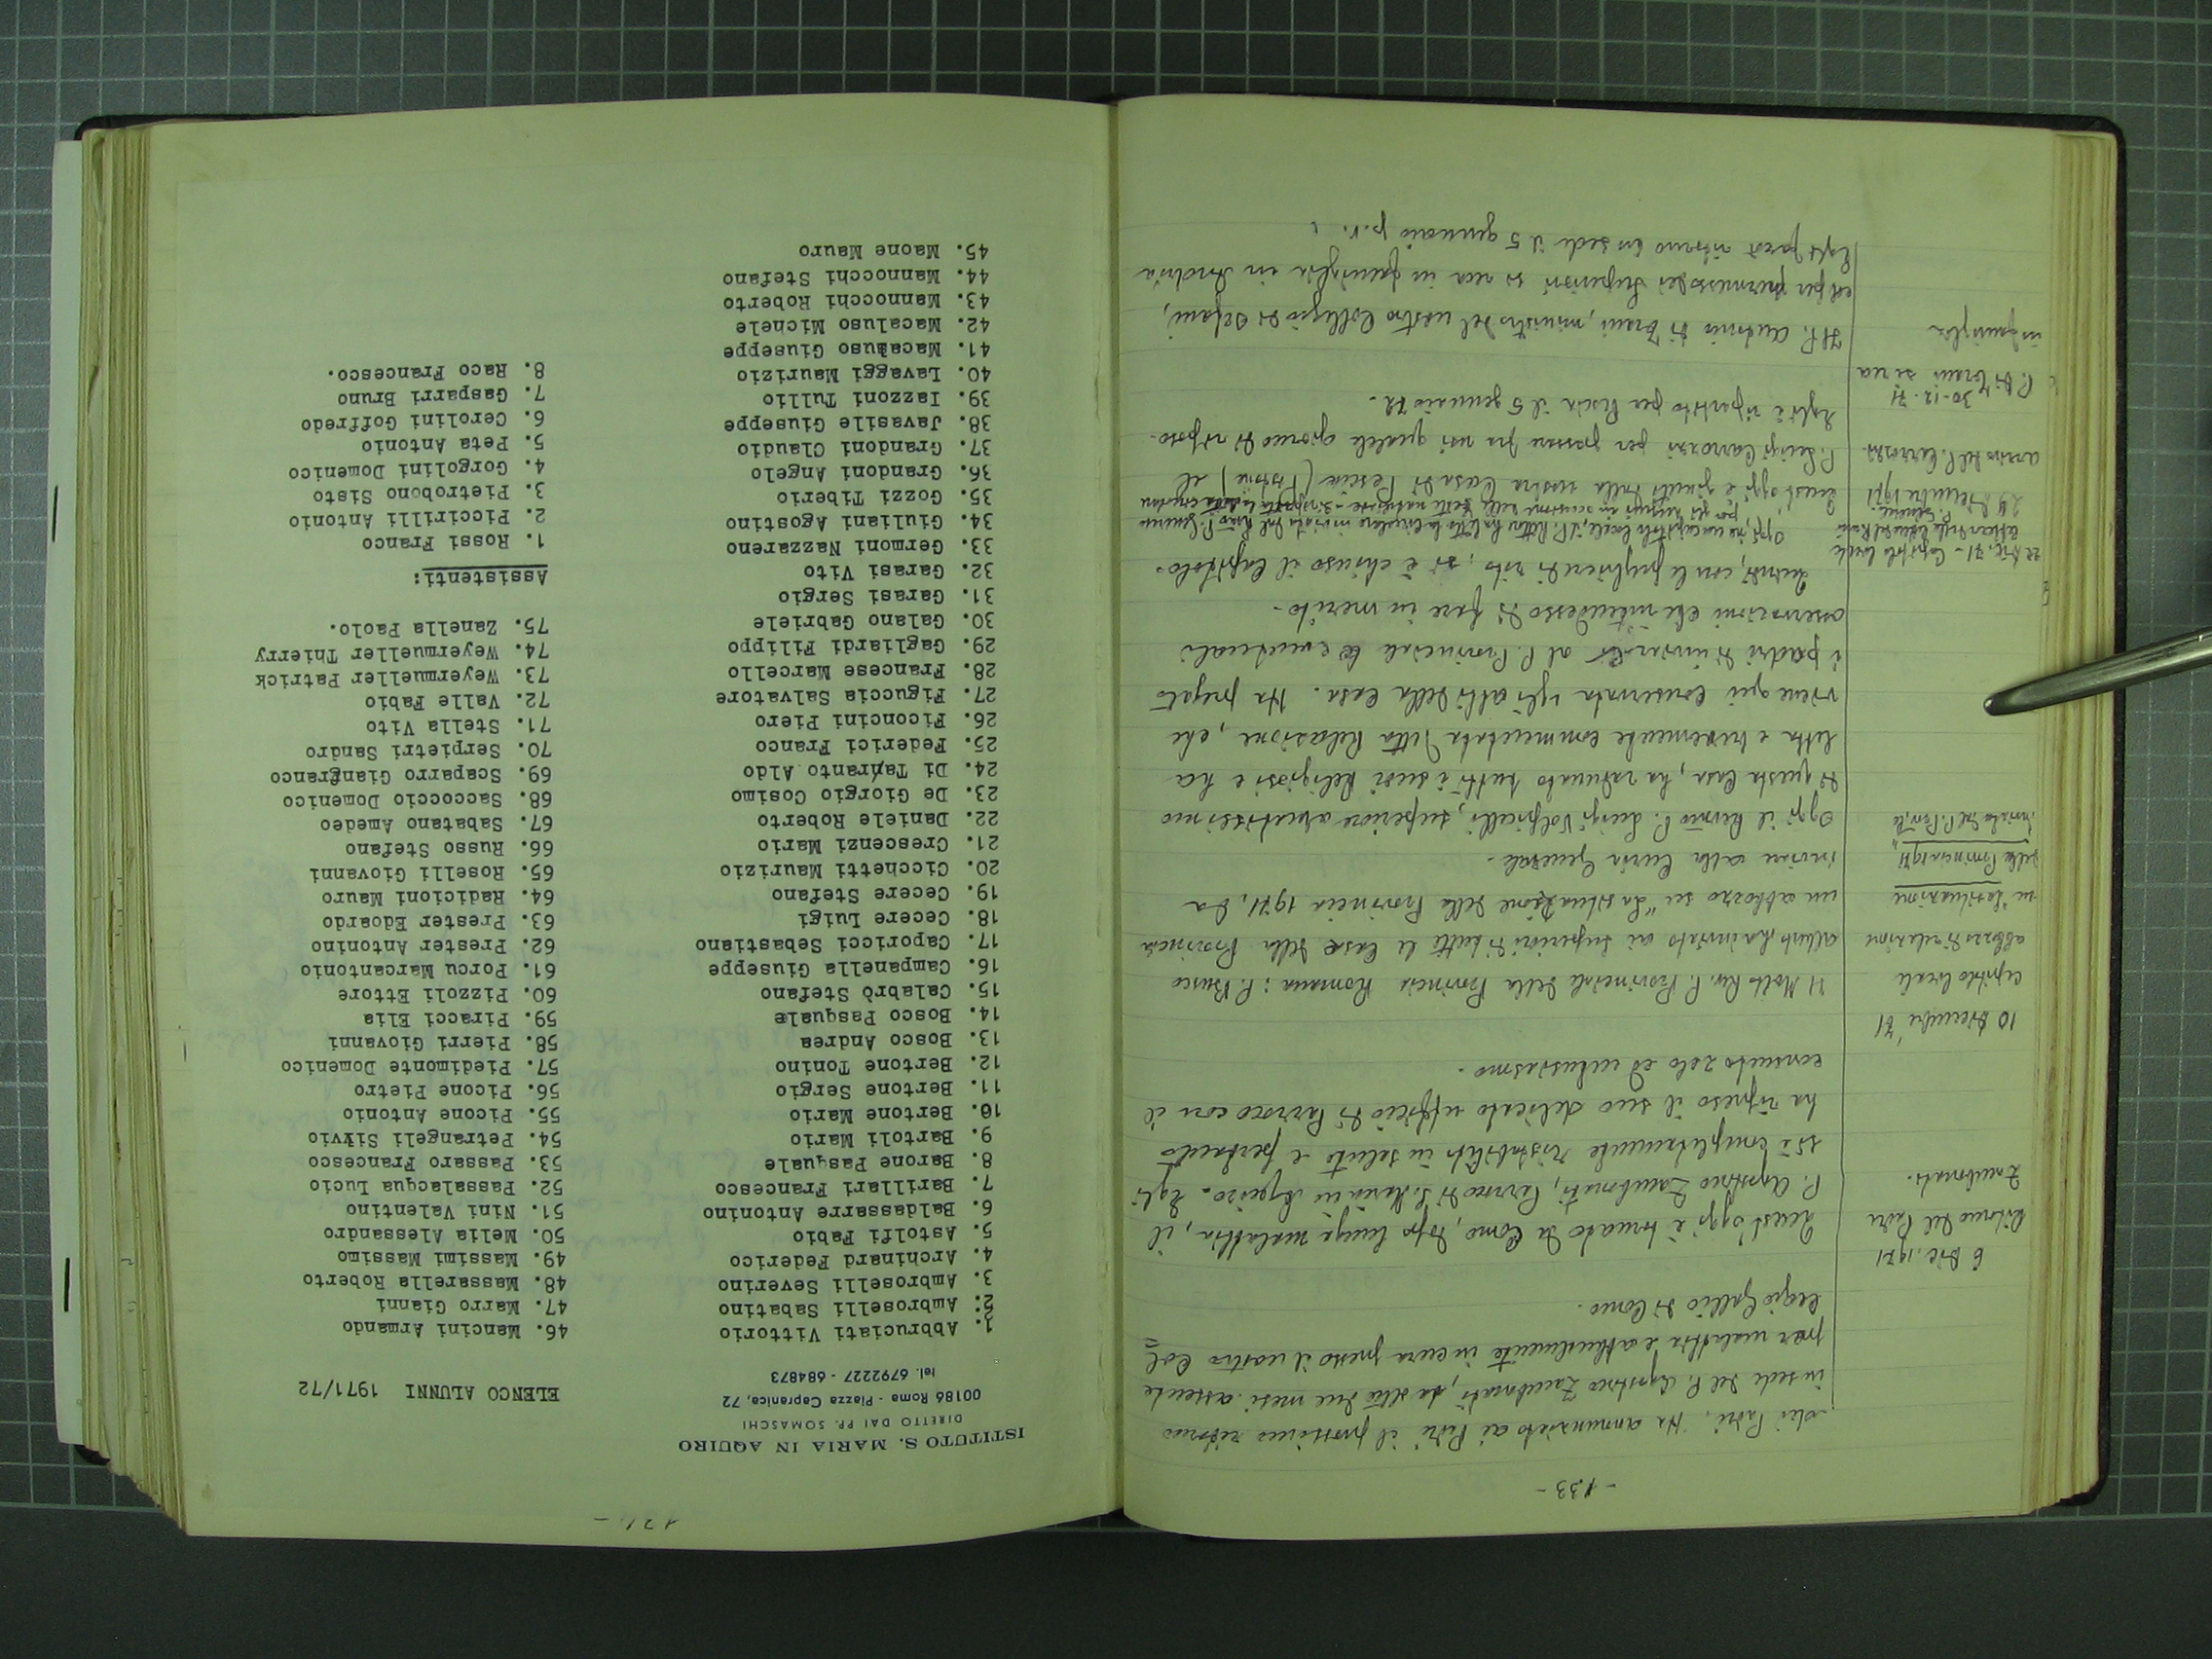 - 133 -
dei Padri. Ha annunziato ai Padri il prossimo ritorno
in sede del P. Agostino Zambonati, da oltre due mesi assente
per malattia e attualmente in cura presso il nostro Col=
legio Gallio di Como.
6 Dic. 1971
Ritorno del Padre
Zambonati.
Quest'oggi è tornato da Como, dopo lunga malattia, il
P. Agostino Zambonati, Parroco di S. Maria in Aquiro. Egli
si è completamente ristabilito in salute e pertanto
ha ripreso il suo delicato ufficio di Parroco con il
consueto zelo ed entusiasmo.
10 Dicembre '71
Capitolo locale
abbozzo di relazione
su "La situazione
della Provincia 1971"
inviata dal P. Prov.le
Il Molto Rev. P. Provinciale della Provincia Romana: P. Busco
Alberto ha inviato ai Superiori di tutte le Case della Provincia
un abbozzo su "La situazione della Provincia 1971, da
inviare alla Curia Generale.
Oggi il Rev.mo P. Luigi Volpicelli, superiore amatissimo
di questa Casa, ha radunato tutti i suoi Religiosi e ha
letta e brevemente commentata detta Relazione, che
viene qui conservata negli atti della Casa. Ha pregato
i padri di inviare al P. Provinciale le eventuali
osservazioni che intendesse di fare in merito.
Quindi, con le preghiere di rito, si è chiuso il Capitolo.
22 Dic. 71 - Capitolo locale
P. Generale
Oggi, in un capitolo locale, il P. Rettore ha letto la circolare inviata dal Rev.mo P. Generale
per gli auguri in occasione delle feste natalizie.
29 Dicembre 1971
arrivo del P. Carrozzi
Quest'oggi è giunto dalla nostra Casa di Pescia (Pistoia) il
P. Luigi Carrozzi per passare fra noi qualche giorno di riposo.
Egli è ripartito per Pescia il 5 gennaio 72.
30-12-71
P. Di Terni si reca
in famiglia
Il P. Antonio di Terni, ministro del nostro Collegio di Orfani,
col permesso dei Superiori si reca in famiglia in Andria
Egli farà ritorno in sede il 5 gennaio p.v.
ISTITUTO S. MARIA IN AQUIRO
DIRETTO DAI PP. SOMASCHI
00186 Roma - Piazza Capranica, 72
Tel. 6792227 - 684873
ELENCO ALUNNI 1971/72
1. Abbruciati Vittorio
2. Ambroselli Sabatino
3. Ambroselli Severino
4. Archinard Federico
5. Astolfi Fabio
6. Baldassarre Antonino
7. Barillari Francesco
8. Barone Pasquale
9. Bartoli Mario
10. Bertone Mario
11. Bertone Sergio
12. Bertone Tonino
13. Bosco Andrea
14. Bosco Pasquale
15. Calabrò Stefano
16. Campanella Giuseppe
17. Caporicci Sebastiano
18. Cecere Luigi
19. Cecere Stefano
20. Cicchetti Maurizio
21. Crescenzi Mario
22. Daniele Roberto
23. De Giorgio Cosimo
24. Di Taranto Aldo
25. Federici Franco
26. Ficoncini Piero
27. Figuccia Salvatore
28. Francese Marcello
29. Gagliardi Filippo
30. Galano Gabriele
31. Garasi Sergio
32. Garasi Vito
33. Germoni Nazzareno
34. Giuliani Agostino
35. Gozzi Tiberio
36. Grandoni Angelo
37. Grandoni Claudio
38. Javasile Giuseppe
39. Iazzoni Tullio
40. Lavaggi Maurizio
41. Macaluso Giuseppe
42. Macaluso Michele
43. Mannocchi Roberto
44. Mannocchi Stefano
45. Maone Mauro
46. Mancini Armando
47. Marro Gianni
48. Massarella Roberto
49. Massimi Massimo
50. Melia Alessandro
51. Nini Valentino
52. Passalacqua Lucio
53. Passaro Francesco
54. Petrangeli Silvio
55. Picone Antonio
56. Picone Pietro
57. Piedimonte Domenico
58. Pierri Giovanni
59. Piracci Elia
60. Pizzoli Ettore
61. Porcu Marcantonio
62. Prester Antonino
63. Prester Edoardo
64. Radicioni Mauro
65. Roselli Giovanni
66. Russo Stefano
67. Sabatano Amedeo
68. Saccoccio Domenico
69. Scaparro Gianfranco
70. Serpietri Sandro
71. Stella Vito
72. Valle Fabio
73. Weyermueller Patrick
74. Weyermueller Thierry
75. Zanella Paolo.
Assistenti:
1. Rossi Franco
2. Piccirilli Antonio
3. Pietrobono Sisto
4. Gorgolini Domenico
5. Peta Antonio
6. Cerolini Goffredo
7. Gasparri Bruno
8. Raco Francesco.